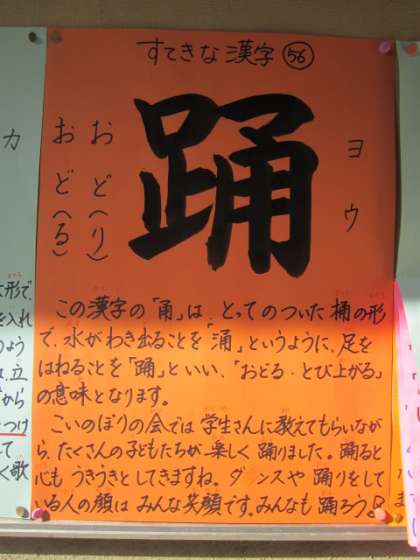 すてきな漢字 56
踊
ヨウ
おど(り)
おど(る)
この漢字の「甬」は、とってのついた桶の形
で、水がわき出ることを「涌」というように、足を
はねることを「踊」といい、「おどる・とび上がる」
の意味となります。
こいのぼりの会では学生さんに教えてもらいなが
ら、たくさんの子どもたちが楽しく踊りました。踊ると
心もうきうきとしてきますね。ダンスや踊りをして
いる人の顔はみんな笑顔です。みんなも踊ろう。
カ
形で、
を入れ
のよう
、立
から
つけ
て
く歌